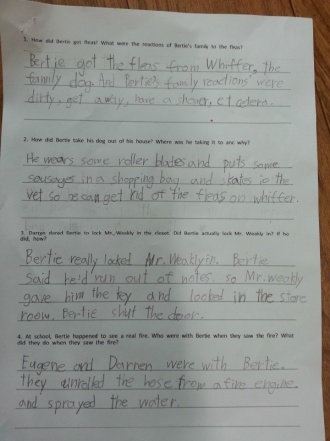 1. How did Bertie get fleas? What were the reactions of Bertie's family to the fleas?
Bertie got the fleas from Whiffer, the
family dog. And Bertie's family reactions were
dirty, get away, have a shower, et cetera.
2. How did Bertie take his dog out of his house? Where was he taking it to and why?
He wears some roller blades and puts some
sausages in a shopping bag and skates to the
vet so he can get rid of the fleas on whiffer.
3. Darren dared Bertie to lock Mr. Weakly in the closet. Did Bertie actually lock Mr. Weakly in? If he
did, how?
Bertie really locked Mr. Weakly in. Bertie
said he'd run out of notes. so Mr. weakly
gave him the key and locked in the store
room. Bertie shut the door.
4. At school, Bertie happened to see a real fire. Who were with Bertie when they saw the fire? What
did they do when they saw the fire?
Eugene and Darren were with Bertie.
they unrolled the hose from a fire engine.
and sprayed the water.